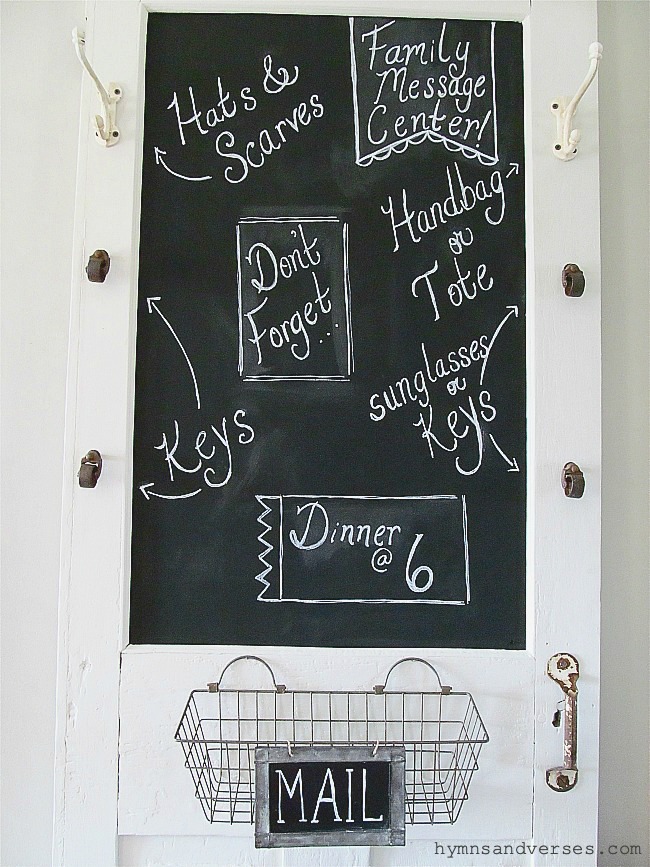 Family
Message
Center!
Hats &
Scarves
Handbag
or
Tote
Don't
Forget...
sunglasses
or
Keys
Keys
Dinner
@ 6
MAIL
hymnsandverses.com